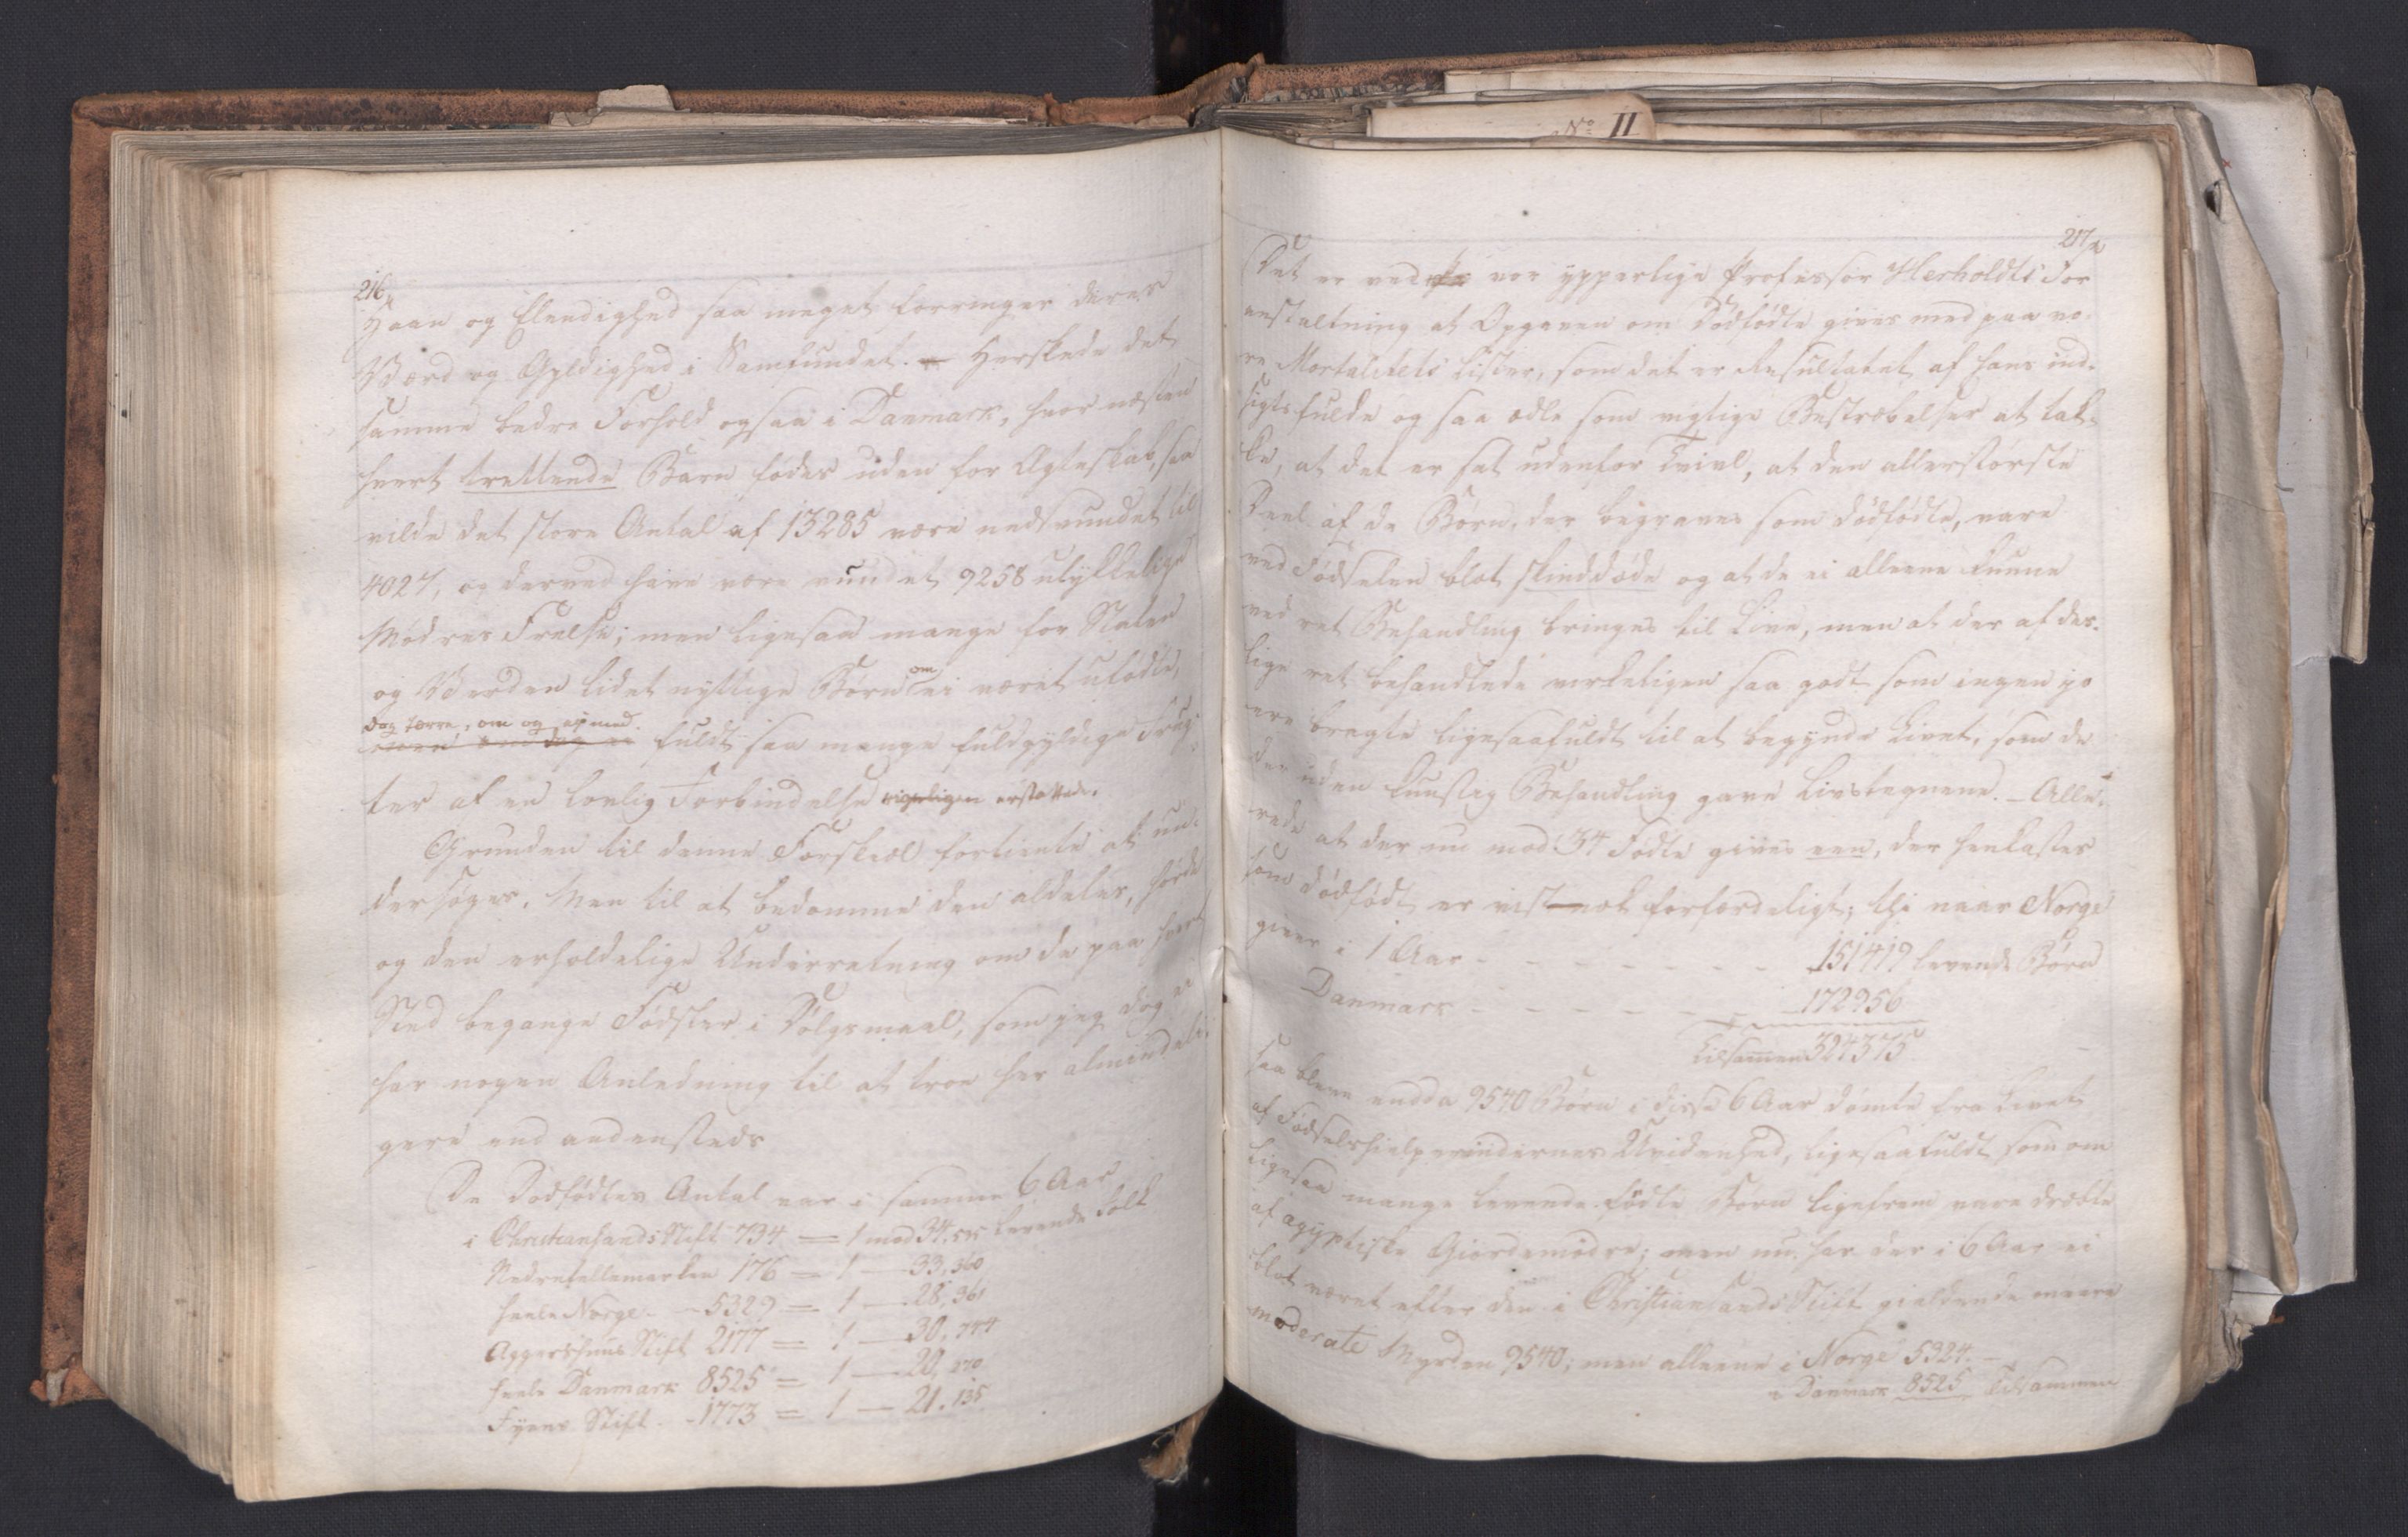 No. II
216
Haan og Elendighed saa meget forringer deres
Værd og Gyldighed i Samfundet. – Herskede det
samme bedre Forhold ogsaa i Danmark, hvor næsten
hvert trettende Barn fødes uden for Ægteskab, saa
vilde det store Antal af 13285 være nedsvundet til
4027, og derved have være vundet 9258 ulykkelige
Mødres Frelse; men ligesaa mange for Staten
og Verden lidet nyttige Børn om ei været ufødte,
dog færre, om og ei med
fuldt saa mange fuldgyldige Frug-
ter af en lovlig Forbindelse rigeligen erstattede.
Grunden til denne Forskiæl fortiente at un-
dersøges. Men til at bedømme den aldeles, hørde
og den erholdelige Underretning om de paa hvert
Sted begangne Fødsler i Dølgsmaal, som jeg dog ei
har nogen Anledning til at troe her almindeli-
gere end andensteds
De Dødfødtes Antal var i samme 6 Aar
i Christiansands Stift 734 = 1 mod 34,515 levende Født
Nedretellemarken 176 = 1 — 33,360
heele Norge - - 5329 = 1 — 28,361
Aggershuus Stift 2177 = 1 — 30,744
heele Danmark 8525 = 1 — 20,270
Fyens Stift - - 1773 = 1 — 21.135
217
Det er ved vor ypperlige Professor Herholdts For
anstaltning at Opgaven om Dødfødte gives med paa vo-
re Mortalitets Lister, som det er Resultatet af hans ind-
sigtsfulde og saa ædle som vigtige Bestræbelser at tak-
ke, at det er sat udenfor Tvivl, at den allerstørste
Deel af de Børn, der begraves som dødfødte, vare
ved Fødselen blot skinddøde og at de ei alleene kunne
ved ret Behandling bringes til Live, men at der af des-
lige ret behandlede virkeligen saa godt som ingen jo
ere bragte ligesaafuldt til at begynde Livet, som de
der uden kunstig Behandling gave Livstegnene. – Alle-
rede at der nu mod 34 Fødte gives een, der henkastes
som dødfødt er vist nok forfærdeligt; thi naar Norge
giver i 1 Aar - - - - - - - - 151419 levende Børn
Danmark - - - - - - - 172956
tilsamen 324375
saa bleve endda 9540 Børn i disse 6 Aar dømte fra Livet
af Fødselshielperindernes Uvidenhed, ligesaafuldt som om
ligesaa mange levende fødte Børn ligefrem vare dræbte
af ægyptiske Giordemødre; men nu har der i 6 Aar ei
blot været efter den i Christiansands Stift gieldende meere
moderate Myrden 9540; men alleene i Norge 5324.
i Danmark 8525 Tilsammen